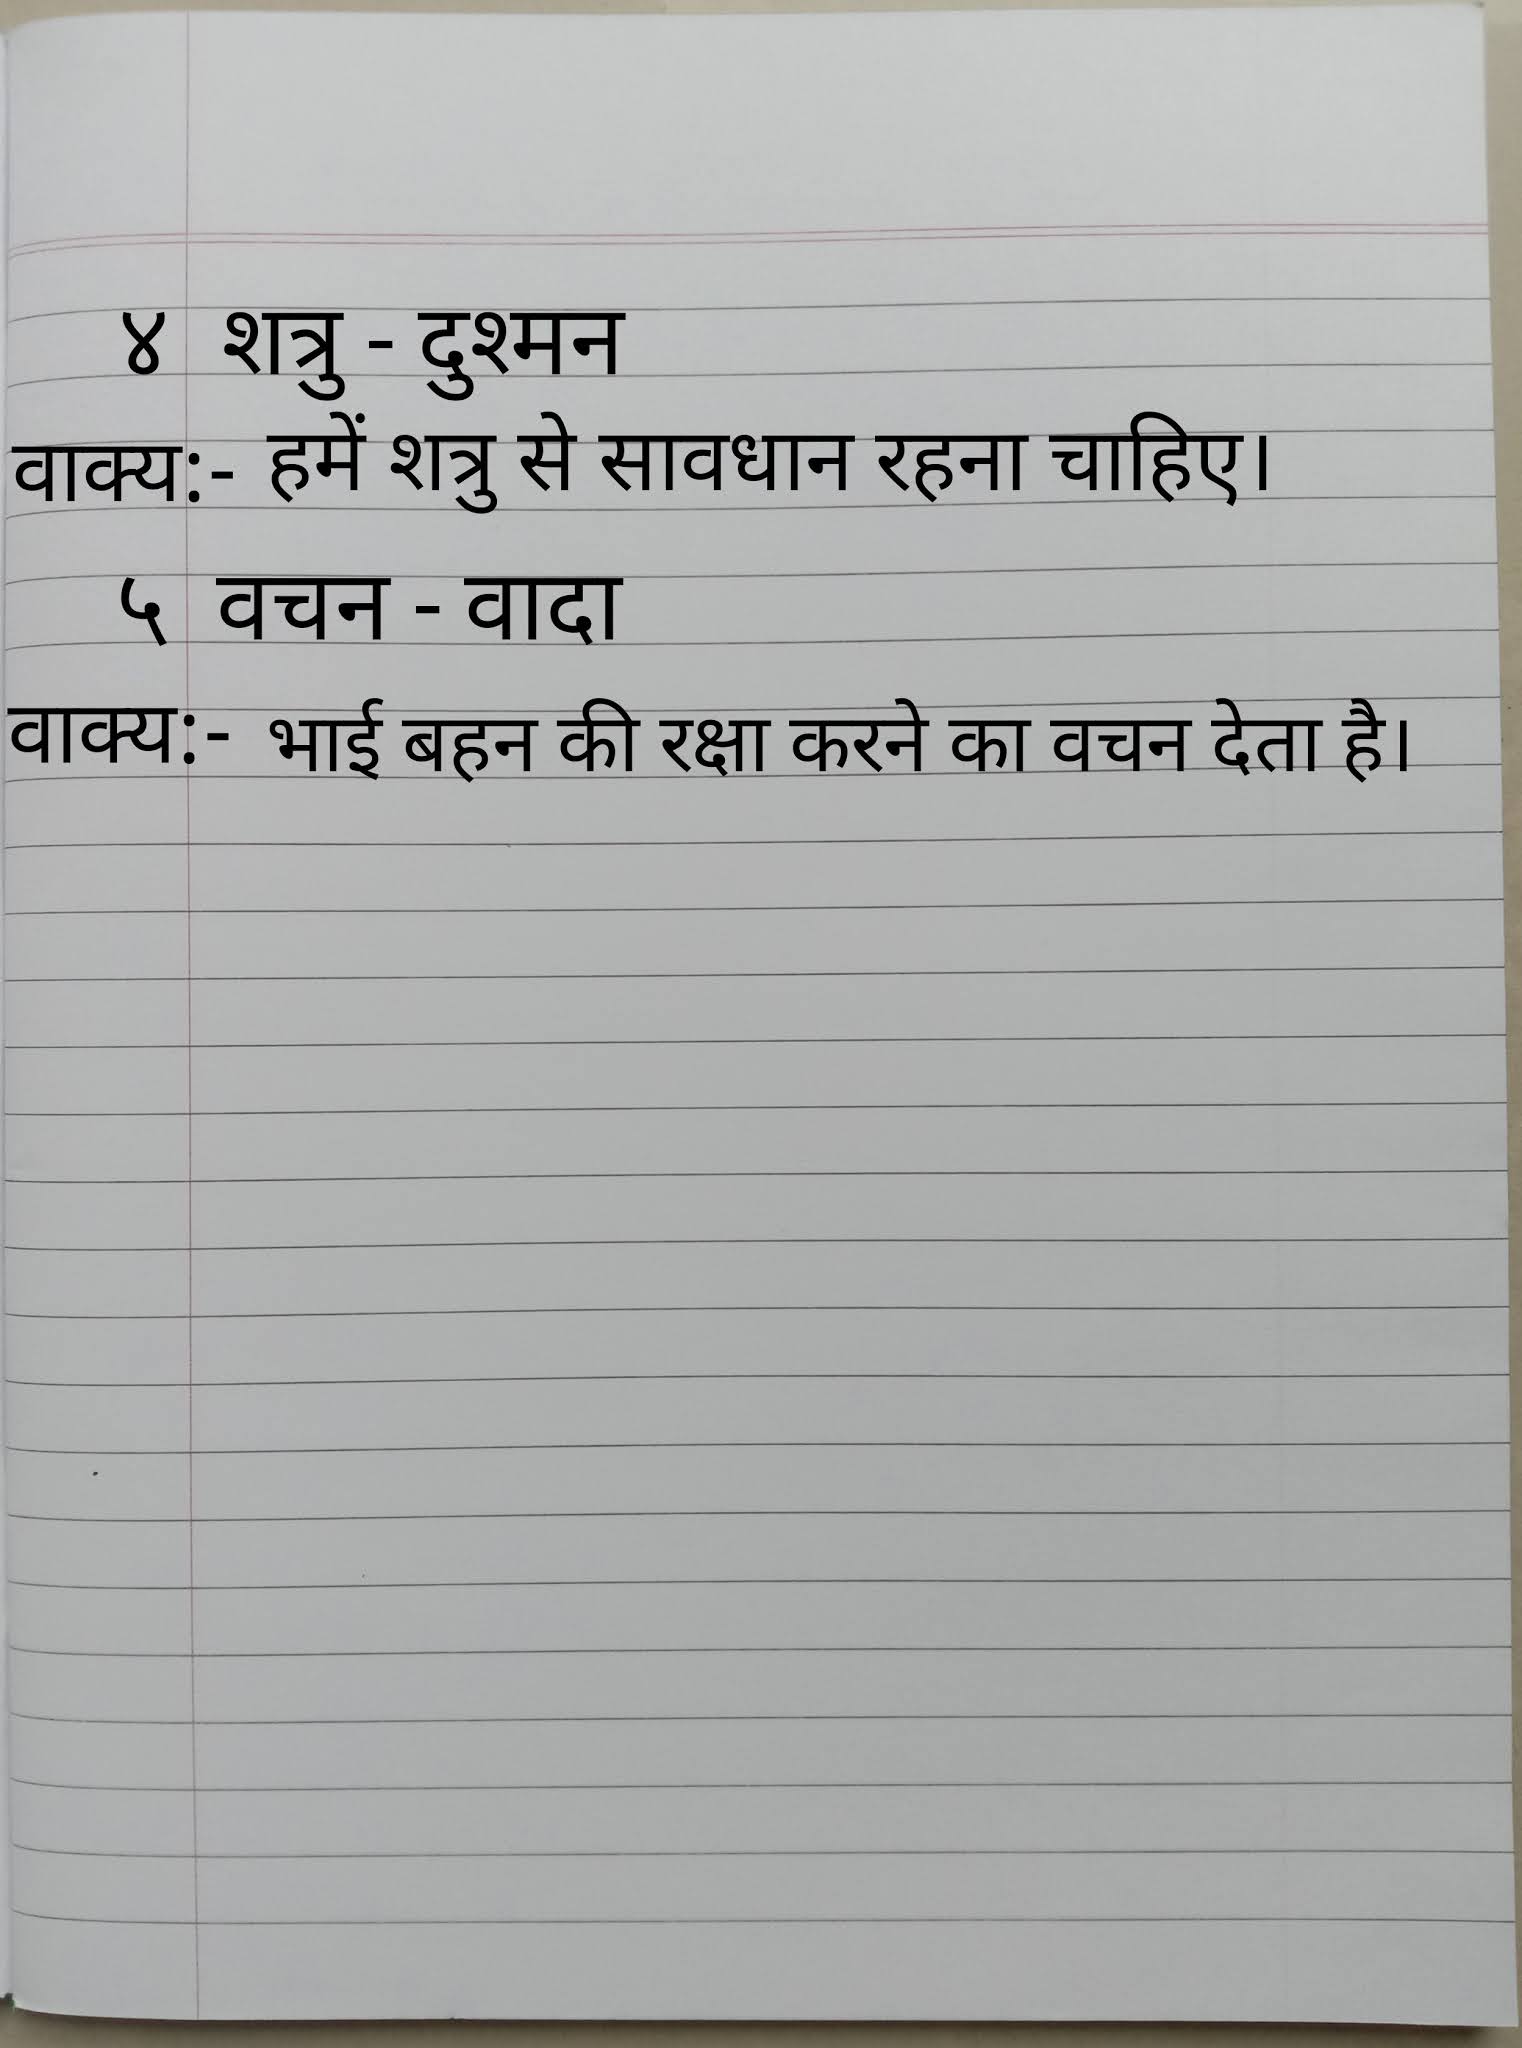 ४ शत्रु - दुश्मन
वाक्य:- हमें शत्रु से सावधान रहना चाहिए।
५ वचन - वादा
वाक्य:- भाई बहन की रक्षा करने का वचन देता है।